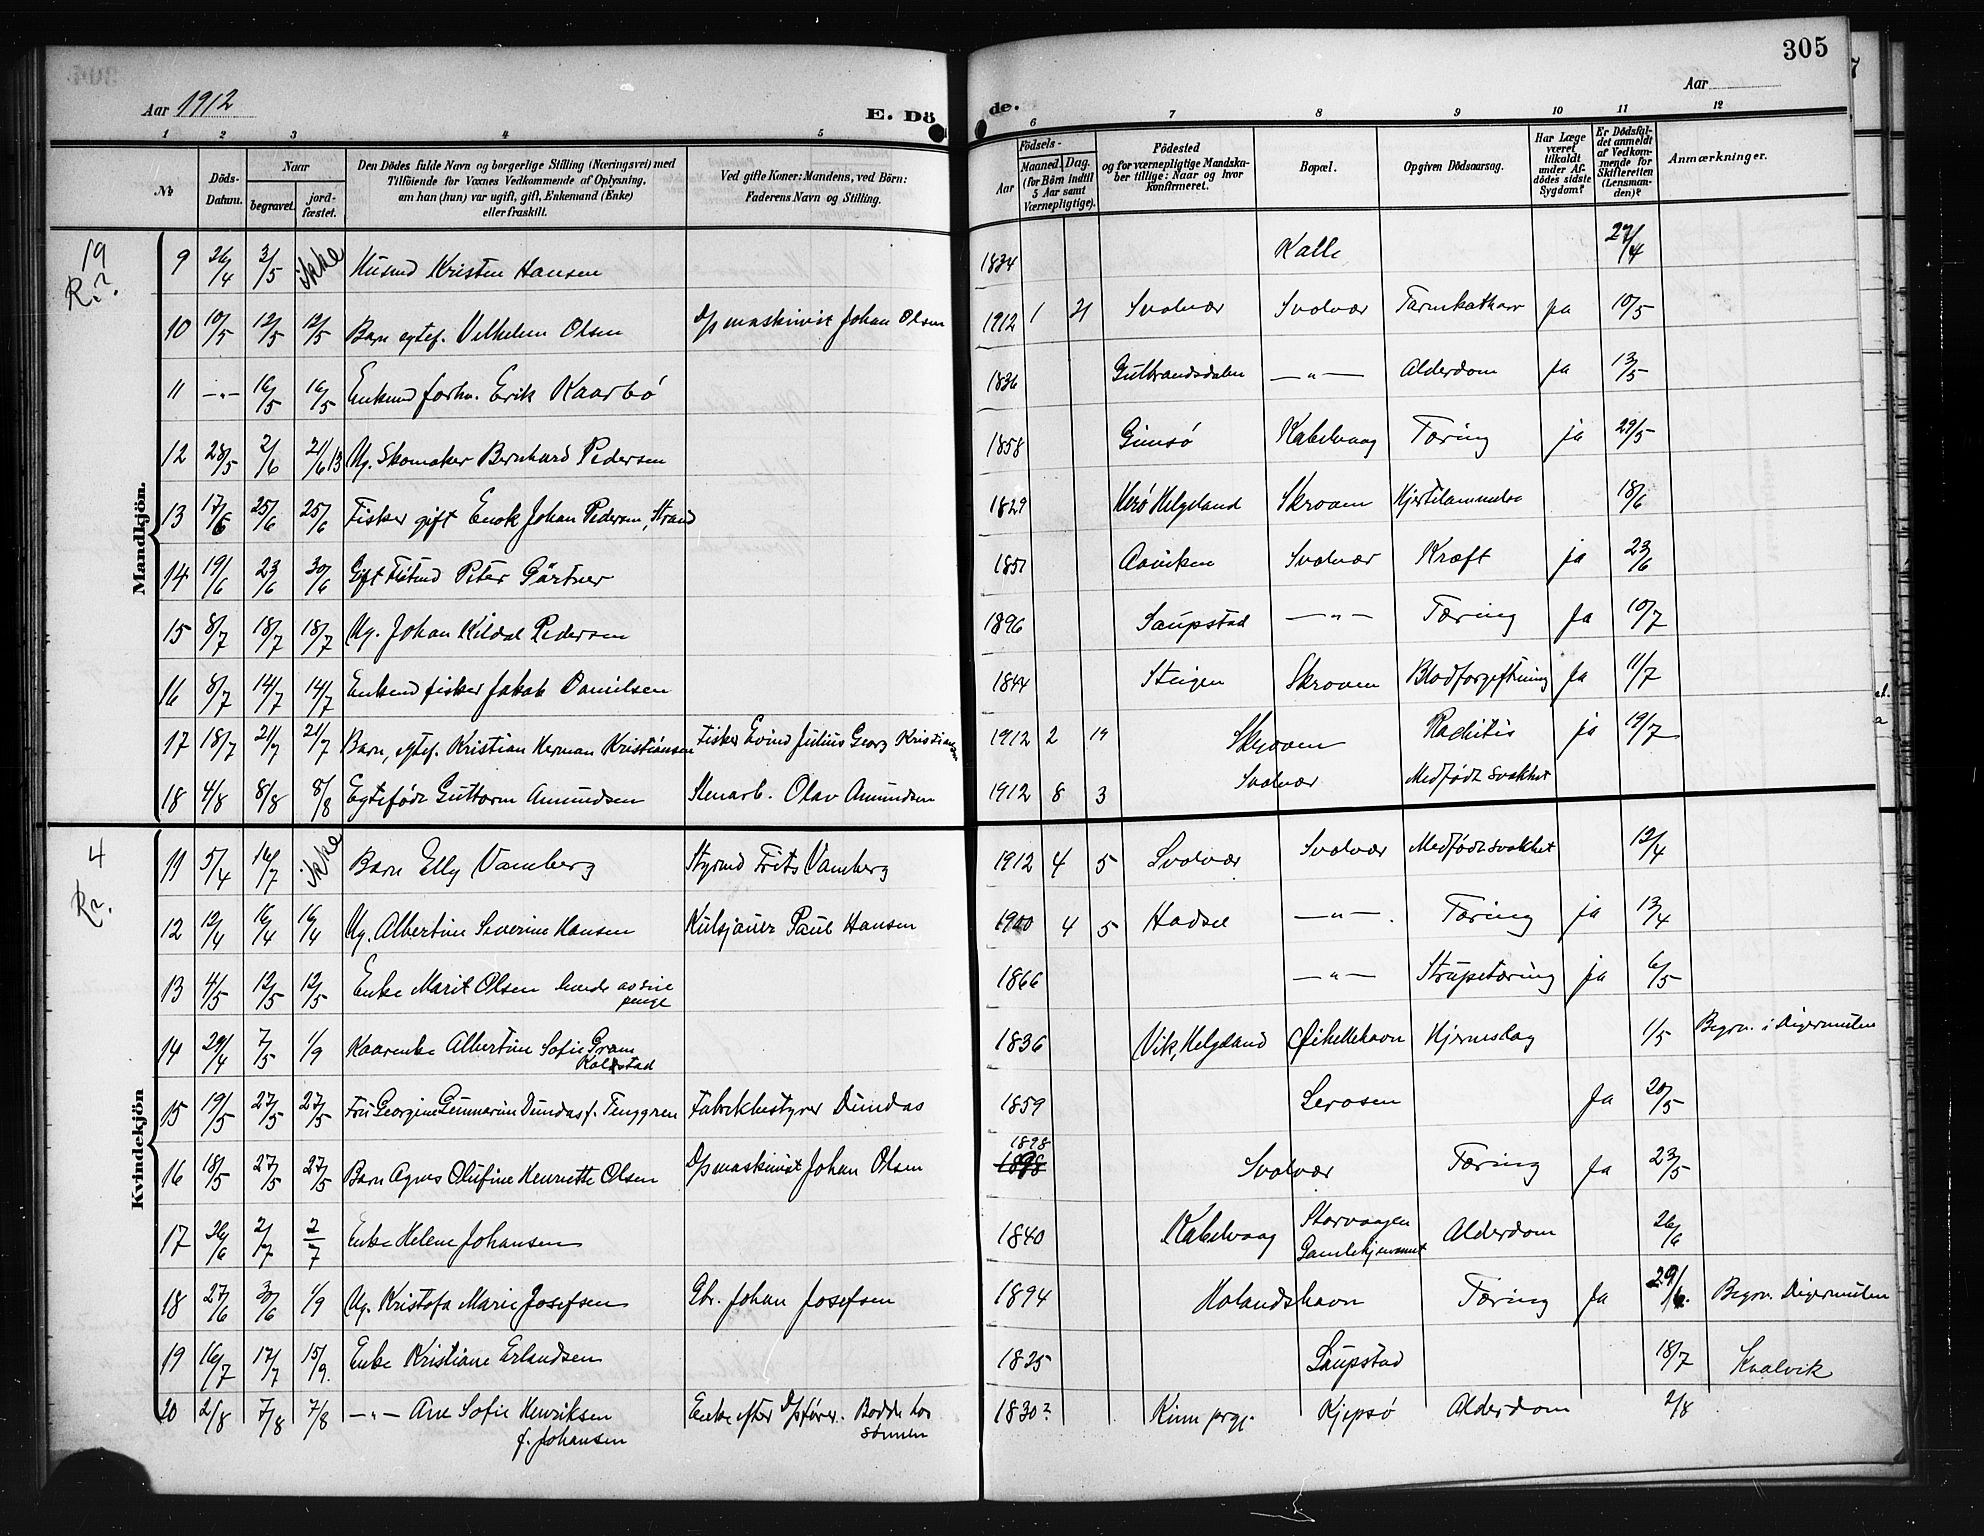 305
Aar 1912
E. Dö
de.
Aar
1 2 3 4 5 6 7 8 9 10 11 12
No
Döds-Datum.
Naar
begravet.
jord-fæstet.
Den Dödes fulde Navn og borgerlige Stilling (Næringsvei) med
Tilföiende for Voxnes Vedkommende af Oplysning,
om han (hun) var ugift, gift, Enkemand (Enke)
eller fraskilt.
Ved gifte Koner: Mandens, ved Börn:
Faderens Navn og Stilling.
Födsels-
Aar
Maaned. Dag.
(for Börn indtil
5 Aar samt
Værnepligtige).
Födested
og for værnepligtige Mandska-
ber tillige: Naar og hvor
konfirmeret.
Bopæl.
Opgiven Dödsaarsag.
Har Læge
været
tilkaldt
under Af-
dödes sidste
Sygdom?
Er Dödsfal-
det anmeldt
af Vedkom-
mende for
Skifteretten
(Lensman-
den)?
Anmærkninger.
Mandkjön.
19
9 26/4 3/5 ikke Husmd Kristen Hansen 1834 Kalle 27/4
10 10/5 12/5 12/5 Barn egtef. Vilhelm Olsen D/p maskinist Johan Olsen 1912 1 21 Svolvær Svolvær Tarmkatharr ja 10/5
11 —"— 16/5 16/5 Enkemd forhv. Erik Kaarbö 1836 Gulbrandsdalen —"— Alderdom ja 13/5
12 28/5 2/6 21/6 13 Ug. Skomaker Bernhard Pedersen 1858 Gimsö Kabelvaag Tæring ja 29/5
13 17/6 25/6 25/6 Fisker gift Enok Johan Pedersen, Strand 1829 Herö Helgeland Skroven Hjertelammelse 18/6
14 19/6 23/6 30/6 Gift Peter Gärtner 1851 Aaviken Svolvær Kræft ja 23/6
15 8/7 18/7 18/7 Ug. Johan Kildal Pedersen 1896 Saupstad —"— Tæring Ja 10/7
16 8/7 14/7 14/7 Enkemd fisker Jakob Danielsen 1844 Steigen Skroven Blodforgiftning Ja 11/7
17 18/7 21/7 21/7 Barn, egtef. Kristian Herman Kristiansen Fisker Evind Julius Georg Kristiansen 1912 2 19 Skroven Rachitis ja 19/7
18 4/8 8/8 8/8 Egtefödt Guttorm Amundsen Stenarb. Olav Amundsen 1912 8 3 Svolvær Medfödt svakhet
Kvindekjön
4
11 5/4 16/7 ikke Barn Elly Vamberg Styrmd Frits Vamberg 1912 4 5 Svolvær Svolvær Medfödt svakhet 12/4
12 12/4 16/4 16/4 Ug. Albertine Severine Hansen Kulsjauer Paul Hansen 1900 4 5 Hadsel —"— Tæring ja 13/4
13 4/5 12/5 12/5 Enke Marit Olsen lever av sine
penge 1866 —"— Strupetæring ja 6/5
14 29/4 7/5 1/9 Kaarenke Albertine Sofie Gram
Kolstad 1836 Vik, Helgeland Øihellehavn Hjerneslag 1/5 Begrv. i Digermulen
15 19/5 27/5 27/5 Fru Georgine Gunnarine Dundas f. Tenggren Fabrikbestyrer Dundas 1859 Lerosen Ja 20/5
16 18/5 27/5 27/5 Barn Agnes Olufine Henriette Olsen D/p maskinist Johan Olsen 1898
1898 Svolvær Tæring Ja 23/5
17 26/6 2/7 2/7 Enke Helene Johansen 1840 Kabelvaag Storvaagen
Gamlehjemmet Alderdom 26/6
18 27/6 30/6 1/9 Ug. Kristofa Marie Josefsen Gbr. Johan Josefsen 1894 Holandshavn Tæring Ja 29/6. Begrv. Digermulen
19 16/7 17/7 15/9. Enke Kristiane Erlandsen 1825 Laupstad 18/7 Kvalvik
20 2/8 7/8 7/8 —"— Ane Sofie Henriksen
f. Johansen Enke efter D/pförer. Bodde hos
sönnen 1830? Kinn prgj. Kjepsö Alderdom 2/8